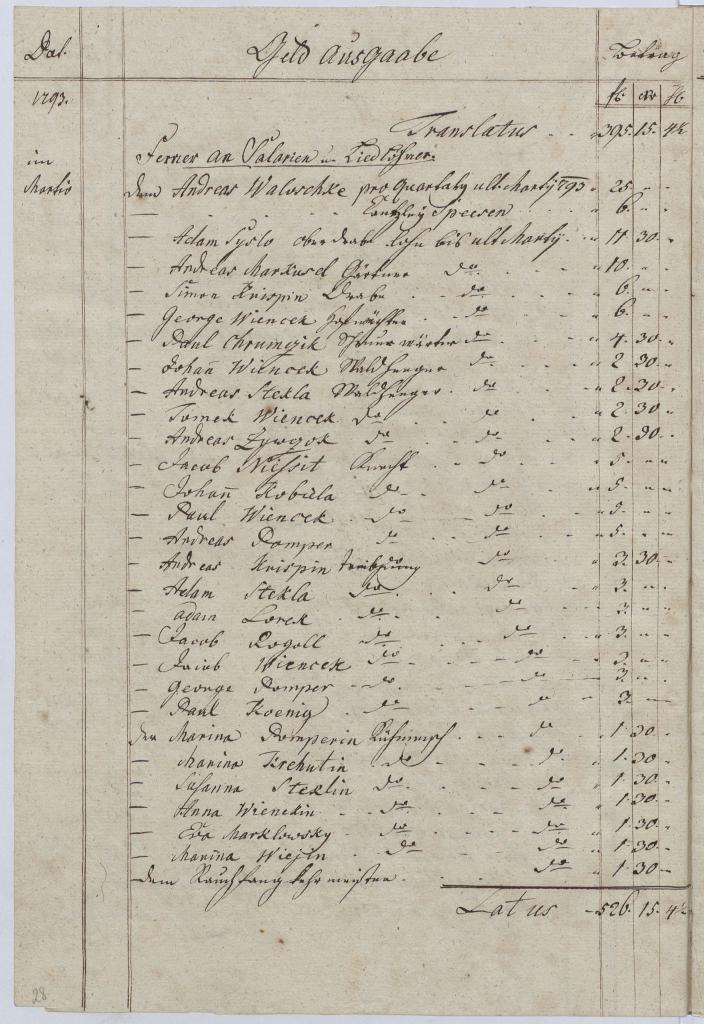 Dat. Geld Ausgaabe Betrag
1793. fl. xr
Translatus 395. 15. 4½
im Ferner an Salarien u. Liedlöhner.
Martio dem Andreas Waloschke pro Quartaly ult. Marty 793 25. " "
— Cantzley Speesen " 6. " "
— Adam Syslo oberdrab Lohn bis ult Marty. " 11 30. "
— Andreas Markusel Gärtner do. " 10. " "
— Simon Krispin Drabe do " 6. " "
— George Wiencek Hofwächter do " 6. " "
— Paul Chrumczik Scheuer wärter do " 4. 30. "
— Johañ Wiencek Waldheeger do " 2 30. "
— Andreas Stekla Waldheeger do " 2. 30. "
— Tomek Wiencek do do " 2. 30 "
— Andreas Zywczok do do " 2. 30. "
— Jacob Niessit Knecht do " 5. " "
— Johañ Kobiela do do " 5. " "
— Paul Wiencek do do " 5. " "
— Andreas Pomper do do " 5. " "
— Andreas Krispin do " 3. 30. "
— Adam Stekla do do " 3. " "
— adam Lorek do do 3. " "
— Jacob Rogoll do do " 3. " "
— Jacob Wiencek do do 3. " "
— George Pomper do do 3. " "
— Paul Koenig do do 3.
der Marina Pomperin Kühmensch do 1 30.
— Marina Krehutin do do 1. 30
— Susanna Steklin do do 1. 30
— Anna Wienckin do do " 1. 30.
— Eva Marklowsky do do " 1. 30.
— Marina Wiejin do do " 1. 30
dem Rauchfang kehr meister do " 1. 30
Latus 526. 15. 4½
28